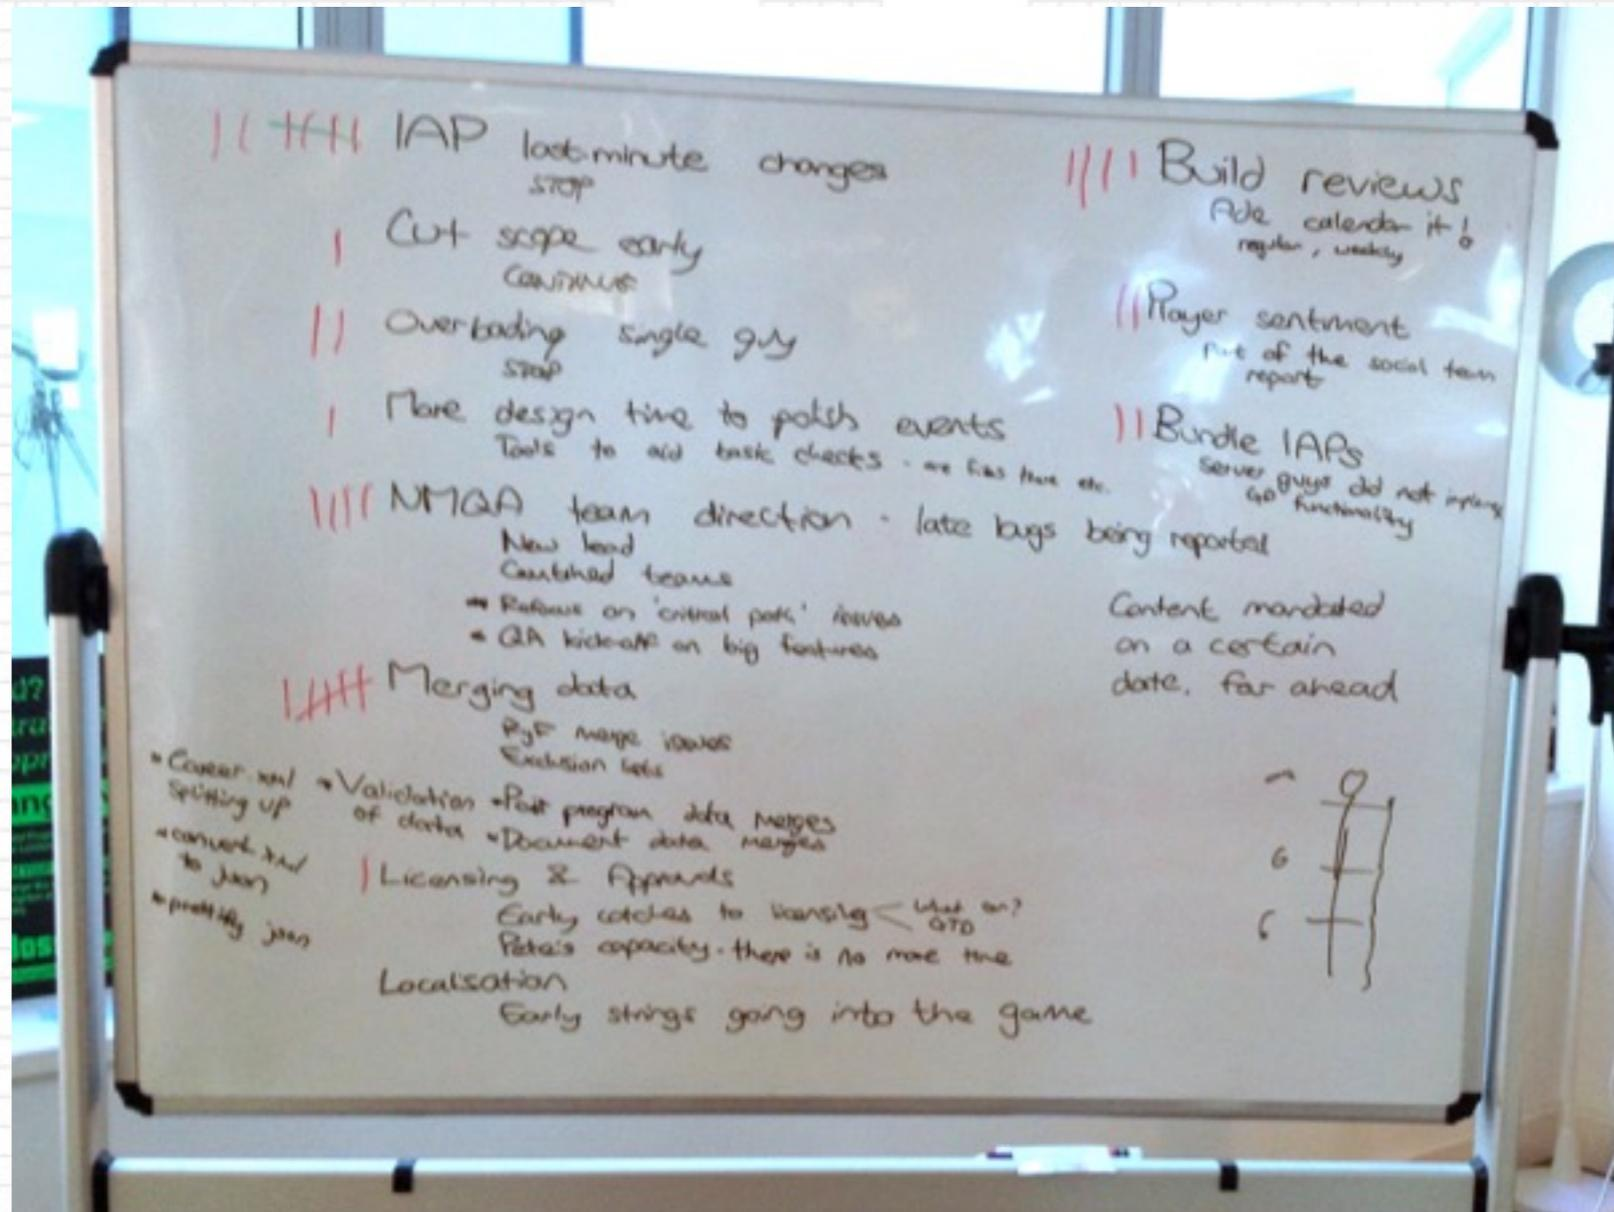 IAP last minute changes
STOP
Cut scope early
Continue
Overloading single guy
STOP
More design time to polish events
Tools to aid basic checks - are files there etc.
NMQA team direction - late bugs being reported
New lead
Combined teams
Refocus on 'critical path' issues
QA kick-off on big features
Merging data
merge issues
Exclusion lists
Career xml
splitting up
convert xml
to json
prettify json
Validation
of data
Post program data merges
Document data merges
Licensing & Approvals
Early catches to licensing
What on?
GTD
Pete's capacity. there is no more time
Localisation
Early strings going into the game
Build reviews
Ade calendar it!
regular, weekly
Player sentiment
Part of the social team
report
Bundle IAPs
Server guys did not
functionality
Content mandated
on a certain
date. far ahead
6